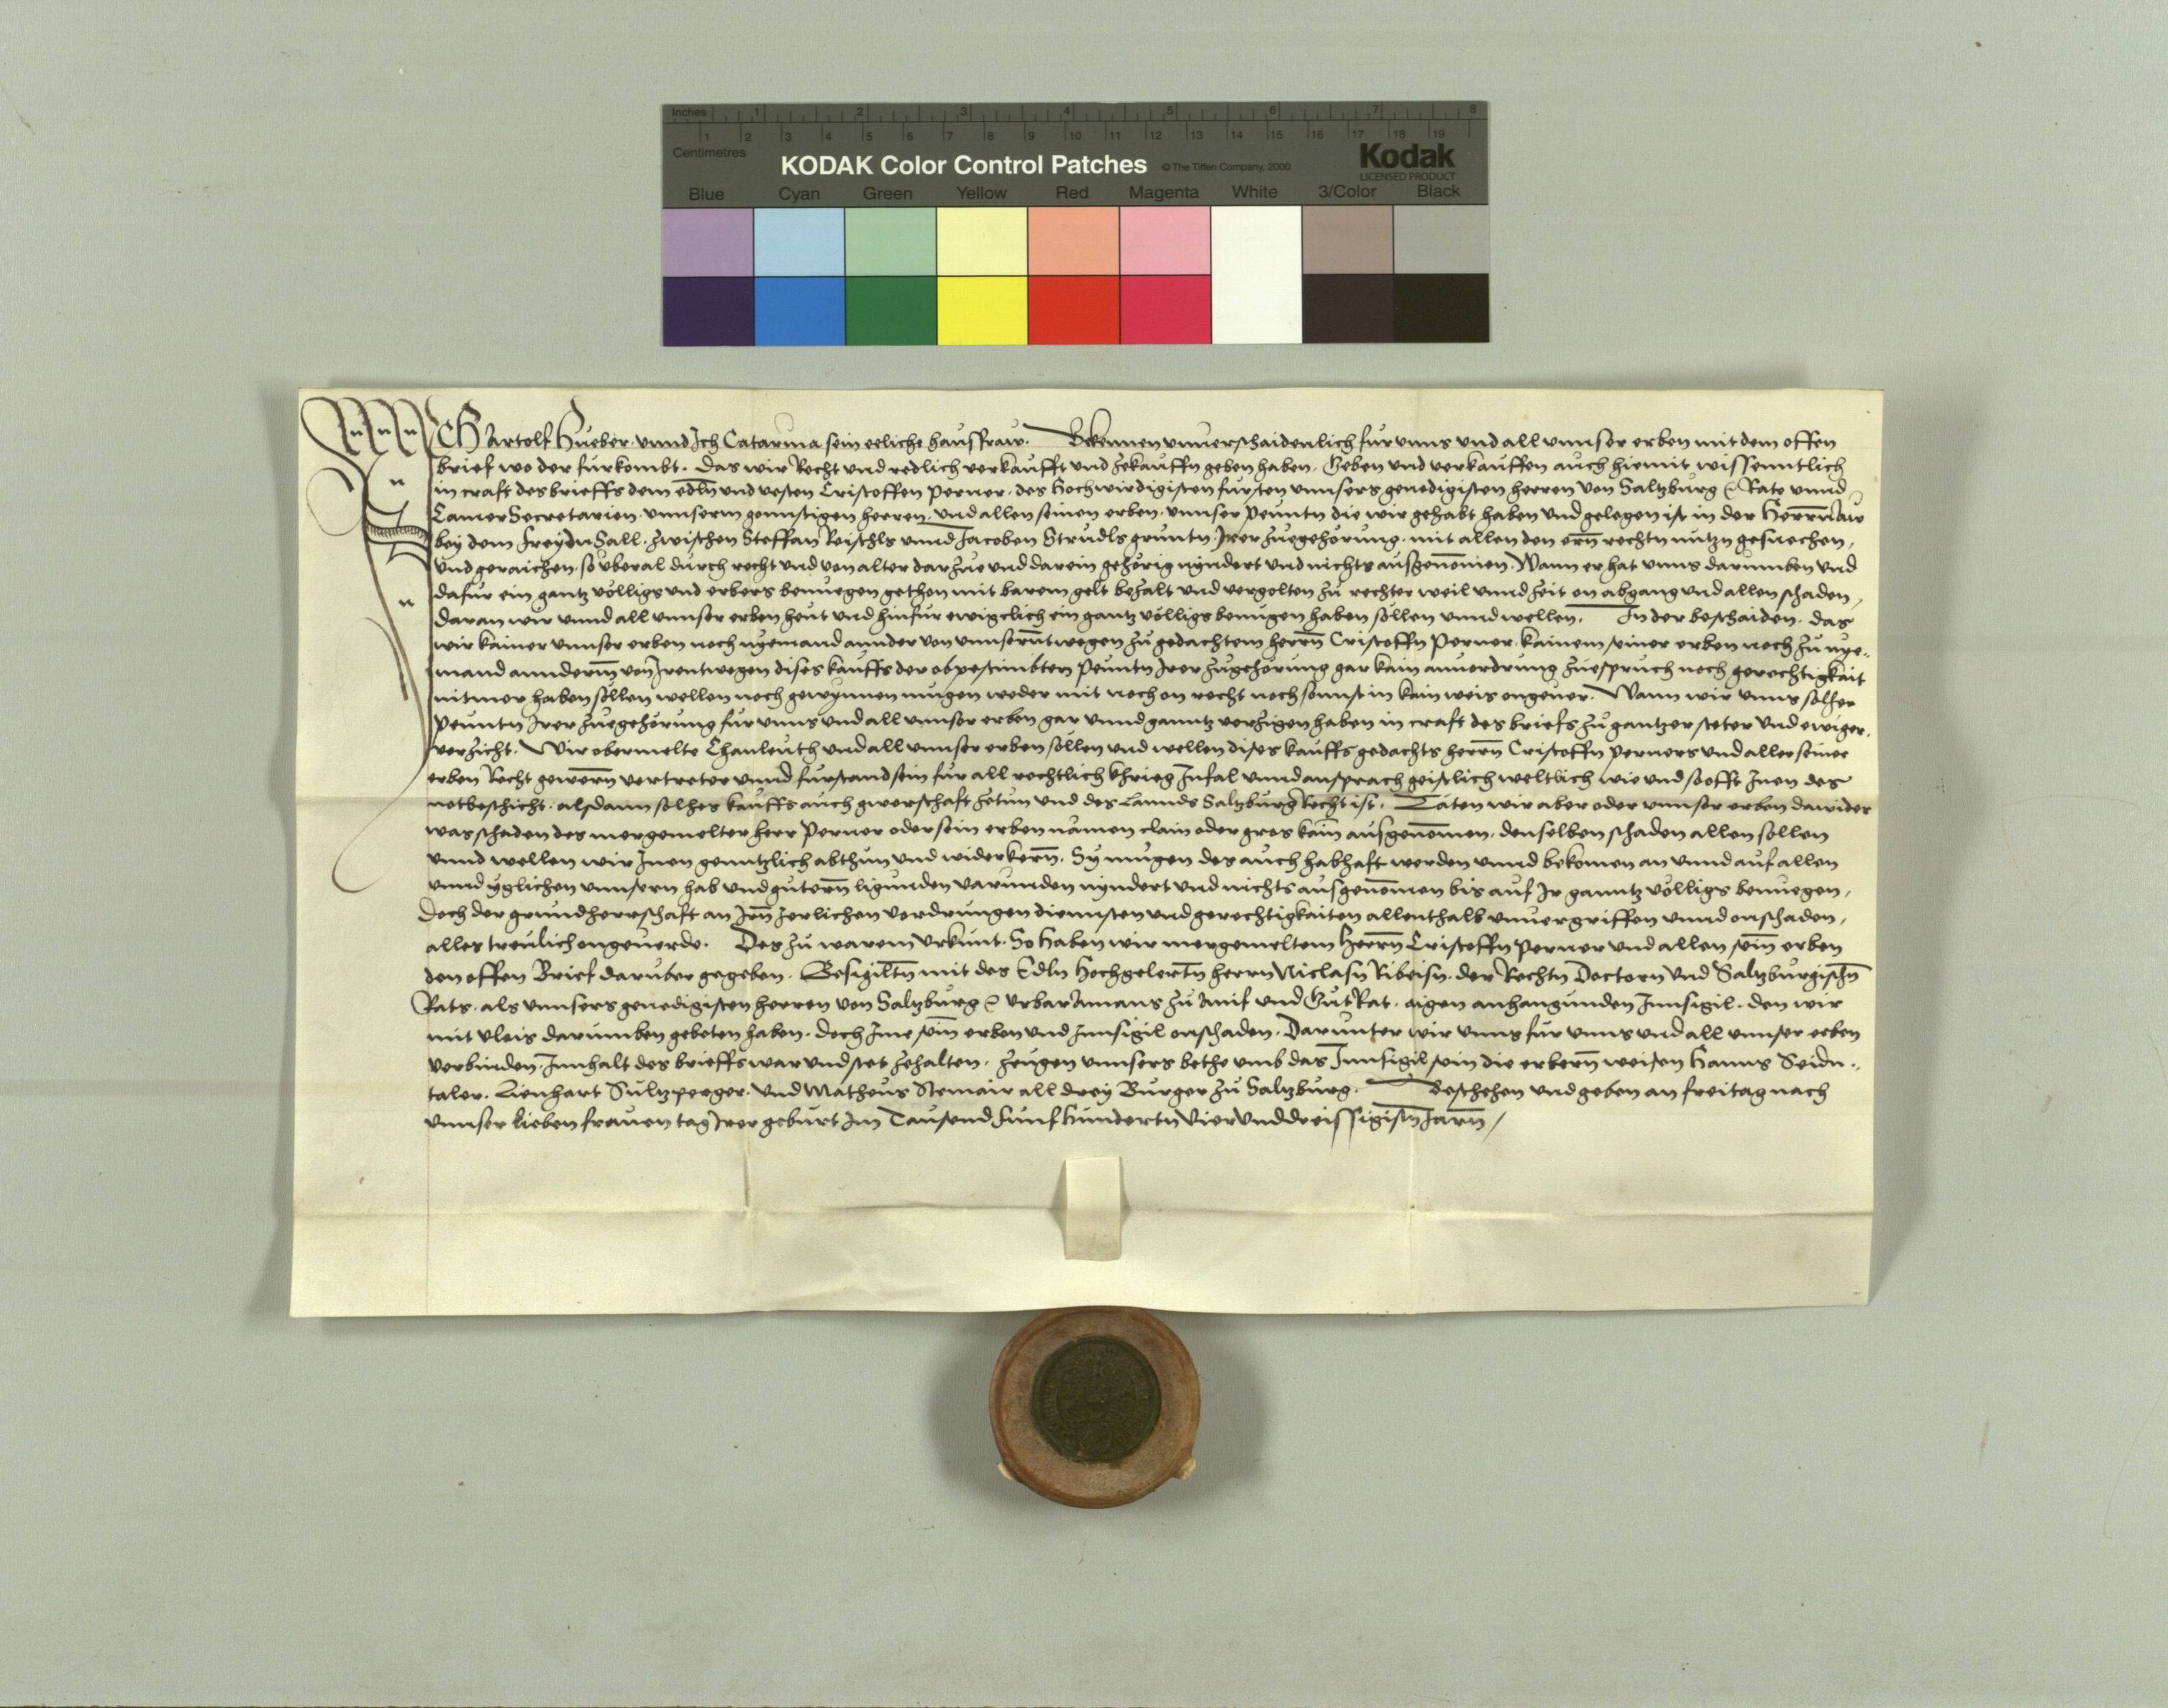 Inches 1 2 3 4 5 6 7 8
1 2 3 4 5 6 7 8 9 10 11 12 13 14 15 16 17 18 19
Centimetres
KODAK Color Control Patches © The Tiffen Company, 2000 Kodak
LICENSED PRODUCT
Blue Cyan Green Yellow Red Magenta White 3/Color Black
Ich Artolf Hueber vnnd Ich Catarina sein eeliche hausfraw. Bekennen vnuerschaidenlich fur vnns vnd all vnnser erben mit dem offen
brief wo der furkombt. Das wir Recht vnd redlich verkaufft vnd zekauffn geben haben. Geben vnd verkauffen auch hiemit wissenntlich
in craft des brieffs dem edln vnd vesten Cristoffen Perner. des Hochwirdigisten fursten vnnsers genedigisten herren von Saltzburg Rate vnnd
CamerSecretarien. vnnserm gunstigen herren. vnd allen seinen erben. vnnser Peuntn die wir gehabt haben vnd gelegen ist in der HerrnAw
bey dem FreydnSall. zwischen Steffan Reischls vnnd Jacoben Strudls gruntn. Irer zuegehörung. mit allen den ern rechtn nutzn gesuechen,
vnd geraichen. so vberal durch recht vnd von alter darzue vnd darein gehörig nyndert vnd nichts ausgenomen. Wann er hat vnns darumben vnd
dafur ein gantz völligs vnd erbers benuegen gethon mit barem gelt bezalt vnd vergolten zu rechter weil vnnd zeit on abgang vnd allen schaden,
daran wir vnnd all vnnser erben heut vnd hinfur ewigclich ein gantz völligs benugen haben söllen vnnd wellen. In der beschaiden. das
wir kainer vnnser erben noch nyemand annder von vnnsernt wegen zu gedachtem herrn Cristoffn Perner. kainem seiner erben noch zu nye-
mand annderm von Irentwegen dises kauffs der obgestimbten Peuntn Irer zugehörung gar kain anuordrung zuespruch noch gerechtigkait
nitmer haben söllen wellen noch gewynnen mugen weder mit noch on recht noch sonnst in kain weis ongeuer. Wann wir vnns solher
Peuntn Irer zuegehörung fur vnns vnd all vnnser erben gar vnnd ganntz verzigen haben in craft des briefs zu gantzer steter vnd ewiger.
verzicht. Wir obermelte Chonleuth vnd all vnnser erben söllen vnd wellen dises kauffs gedachts herrn Cristoffn Perners vnd aller seiner
erben Recht gewern vertreter vnnd furstand sein fur all rechtlich khrieg Infal vnnd ansprach geistlich weltlich wie vnd so offt Inen des
notbeschicht. alsdann solhes kauffs auch gwerschaft zetun vnd des Lannds Saltzburg Recht ist. Täten wir aber oder vnnser erben dawider
was schaden des mergemelter herr Perner oder sein erben nämen clain oder gros kain ausgenomen. denselben schaden allen sollen
vnnd wellen wir Inen genntzlich abthun vnd widerkern. Sy mugen des auch habhaft werden vnnd bekomen an vnnd auf allen
vnnd yglichen vnnsern hab vnd gutern ligunden varunden nyndert vnd nichts ausgenomen bis auf Ir ganntz völligs benuegen,
Doch der grundherrschaft an Irn Jerlichen vordrungen diennsten vnd gerechtigkaiten allenthalb vnuergriffen vnnd onschaden,
alles treulich ongeuerde. Des zu warem vrkunt. So haben wir mergemeltem herrn Cristoffn Perner vnd allen sein erben
den offen Brief daruber gegeben. Besigiltn mit des Edln Hochgelertn herrn Niclasn Ribeisn. der Rechtn Doctorn vnd Saltzburgischn
Rats. als vnnsers genedigisten herren von Saltzburg vrbar Amans zu Anif vnd GutRat. aigen anhangunden Innsigil. den wir
mit vleis darumben gebeten haben. doch Ime sein erben vnd Innsigil onschaden. Darunter wir vnns fur vnns vnd all vnnser erben
verbinden. Innhalt des brieffs war vnd stet zehalten. zeugen vnnsers bethe vmb das Innsigil sein die erbern weisen Hanns Seidn-
taler. Lienhart Sultzperger. vnd Matheus Stemair all drey Burger zu Saltzburg. Beschehen vnd geben an freitag nach
vnnser lieben frauen tag Irer geburt Im Tausend funfhundertn vierVnddreissigistn Jarn